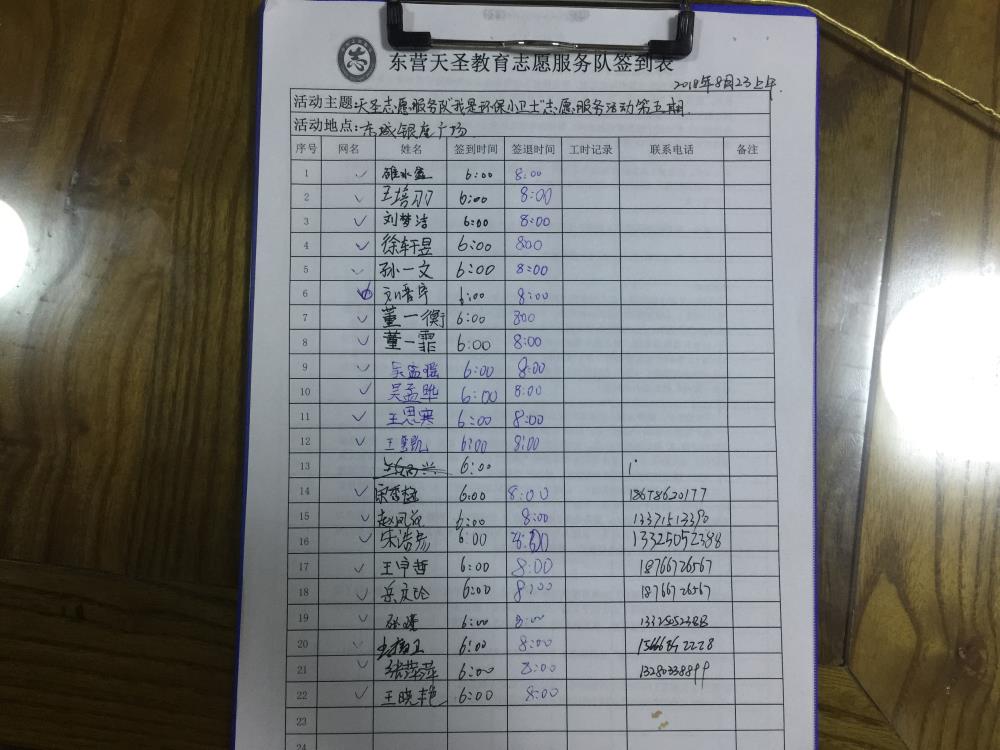 志
东营天圣教育志愿服务队签到表
2018年8月23上午
活动主题:天圣志愿服务队"我是环保小卫士"志愿服务活动第五期
活动地点:东城银座广场
序号 网名 姓名 签到时间 签退时间 工时记录 联系电话 备注
1 ✓ 6:00 8:00
2 ✓ 王培羽 6:00 8:00
3 ✓ 刘梦洁 6:00 8:00
4 ✓ 徐轩昱 6:00 8:00
5 ✓ 孙一文 6:00 8:00
6 6:00 8:00
7 ✓ 董一衡 6:00 800
8 ✓ 董一霏 6:00 8:00
9 ✓ 吴孟瑶 6:00 8:00
10 ✓ 吴孟晔 6:00 8:00
11 ✓ 王思寒 6:00 8:00
12 ✓ 6:00 8:00
13 6:00
14 ✓ 6:00 8:00 18678620177
15 ✓ 6:00 8:00 13371513390
16 ✓ 6:00 8:00 13325052388
17 ✓ 王中哲 6:00 8:00 18766726567
18 ✓ 6:00 8:00 18766726567
19 ✓ 6:00 8:00 13325052388
20 ✓ 6:00 8:00
21 ✓ 张萍萍 6:00 8:00 13280338899
22 ✓ 王晓艳 6:00 8:00
23
24